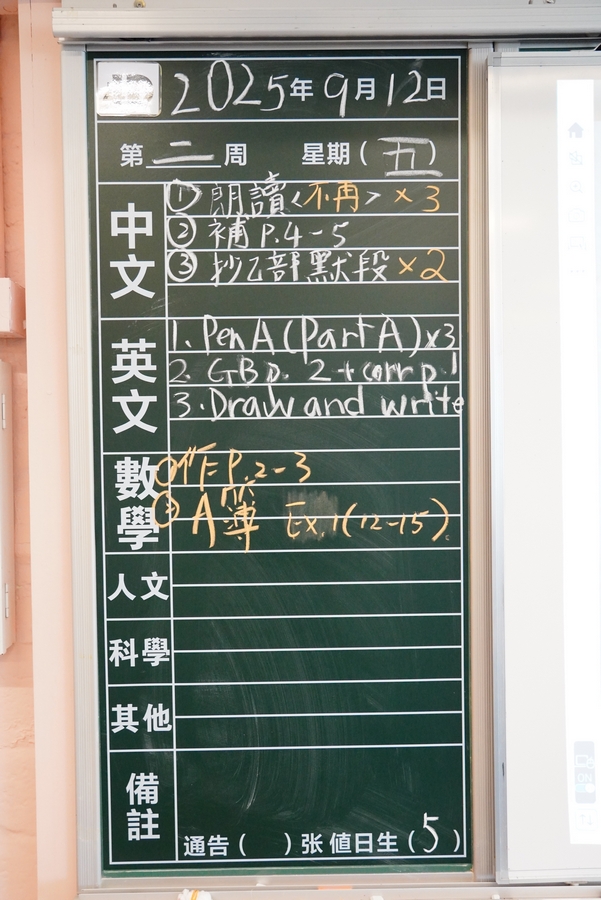 2025年9月12日
第二周 星期(五)
中文
① 朗讀<不再> ×3
② 補 P.4-5
③ 抄乙部默段 ×2
英文
1. Pen A (Part A) x3
2. GB p. 2 + corr p 1
3. Draw and write
數學
① 作 P.2-3
② A簿 Ex.1(12-15)
人文
科學
其他
備註
通告( )张 値日生(5)
ON